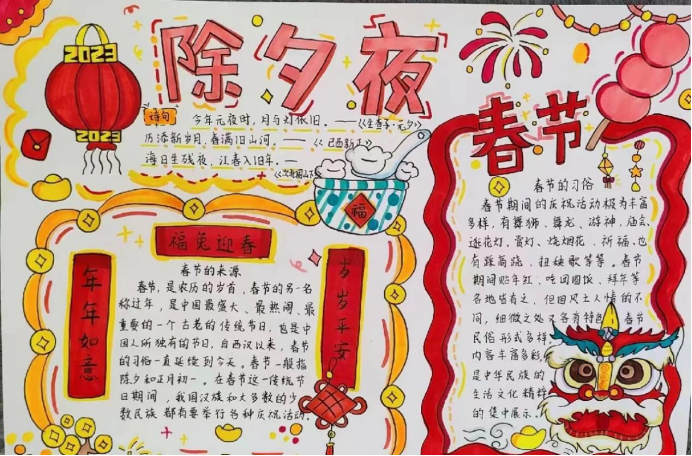 2023
2023
除夕夜
诗句
今年元夜时，月与灯依旧。——《生查子·元夕》
历添新岁月，春满旧山河。——《已酉新正》
海日生残夜，江春入旧年。——
《次北固山下》
福
春节
福兔迎春
年年如意
岁岁平安
春节的来源
春节，是农历的岁首，春节的另一名
称过年，是中国最盛大、最热闹、最
重要的一个古老的传统节日，也是中
国人所独有的节日，自西汉以来，春节
的习俗一直延续到今天。春节一般指
除夕和正月初一。在春节这一传统节
日期间，我国汉族和大多数的少
数民族都有要举行各种庆祝活动。
春节的习俗
春节期间的庆祝活动极为丰富
多样，有舞狮、舞龙、游神、庙会、
逛花灯、赏灯、烧烟花、祈福、也
有踩高跷、扭秧歌等等。春节
期间贴年红、吃团圆饭、拜年等
各地皆有之，但因风土人情的不
同，细微之处又各有特色。春节
民俗形式多样
内容丰富多彩，
是中华民族的
生活文化精粹
的集中展示。